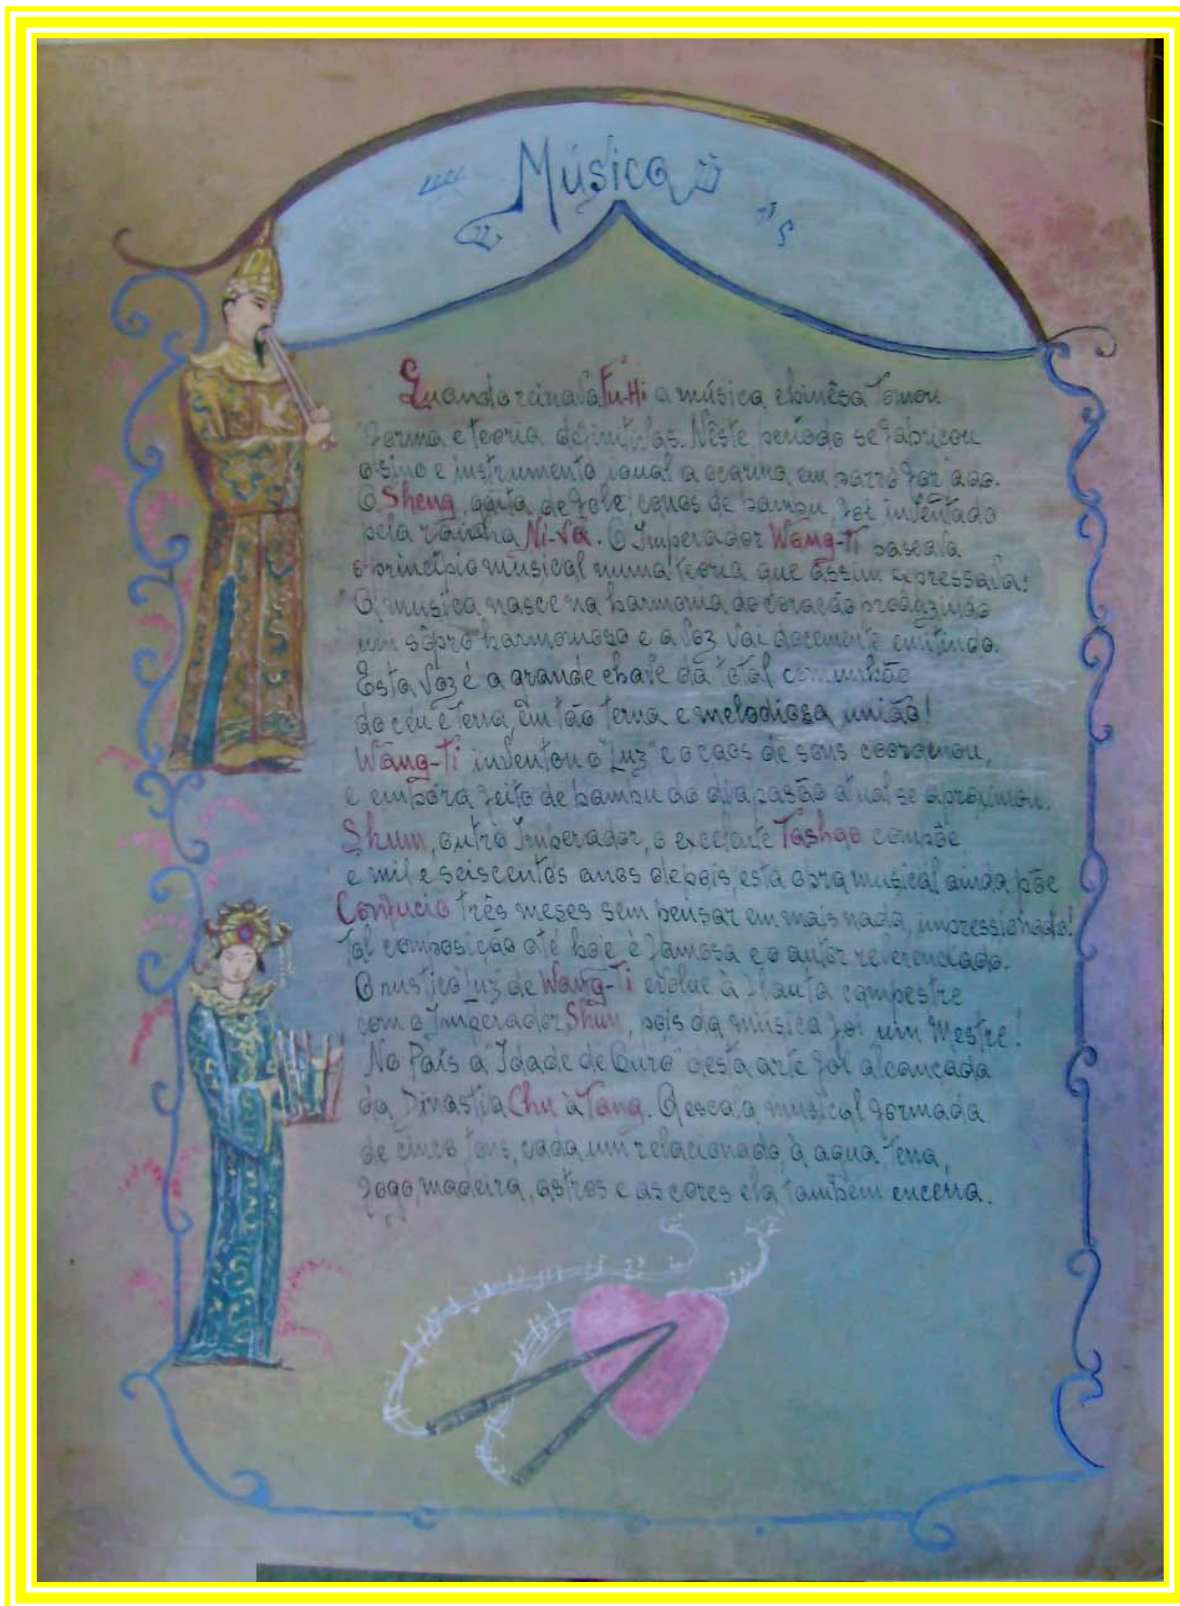 Música
Quando reinava Fu-Hi a música chinêsa tomou
forma e teoria definitivas. Nêste período se fabricou
o sino e instrumento igual a ocarina em barro forjado.
O Sheng, gaita de fole, canos de bambu, foi inventado
pela rainha Ni-Va. O Imperador Wang-Ti baseava
o princípio musical numa teoria que assim expressava:
"A música nasce na harmonia do coração produzindo
um sôpro harmonioso e a voz vai docemente emitindo.
Esta voz é a grande chave da total comunhão
do céu e terra, em tão terna e melodiosa união!
Wang-Ti inventou o "Luz" e o caos de sons coordenou,
e embora feito de bambu do diapasão atual se aproximou.
Shum, outro Imperador, o excelente Tashao compõe
e mil e seiscentos anos depois, esta obra musical ainda põe
Confucio três meses sem pensar em mais nada, impressionado!
Tal composição até hoje é famosa e o autor reverenciado.
O rustico Luz de Wang-Ti evolue à flauta campestre
com o Imperador Shum, pois da música foi um Mestre!
No País a "Idade de Ouro" desta arte foi alcançada
da Dinastia Chu à Tang. A escala musical formada
de cinco tons, cada um relacionado à agua, terra,
fogo, madeira, astros e as cores ela também encerra.